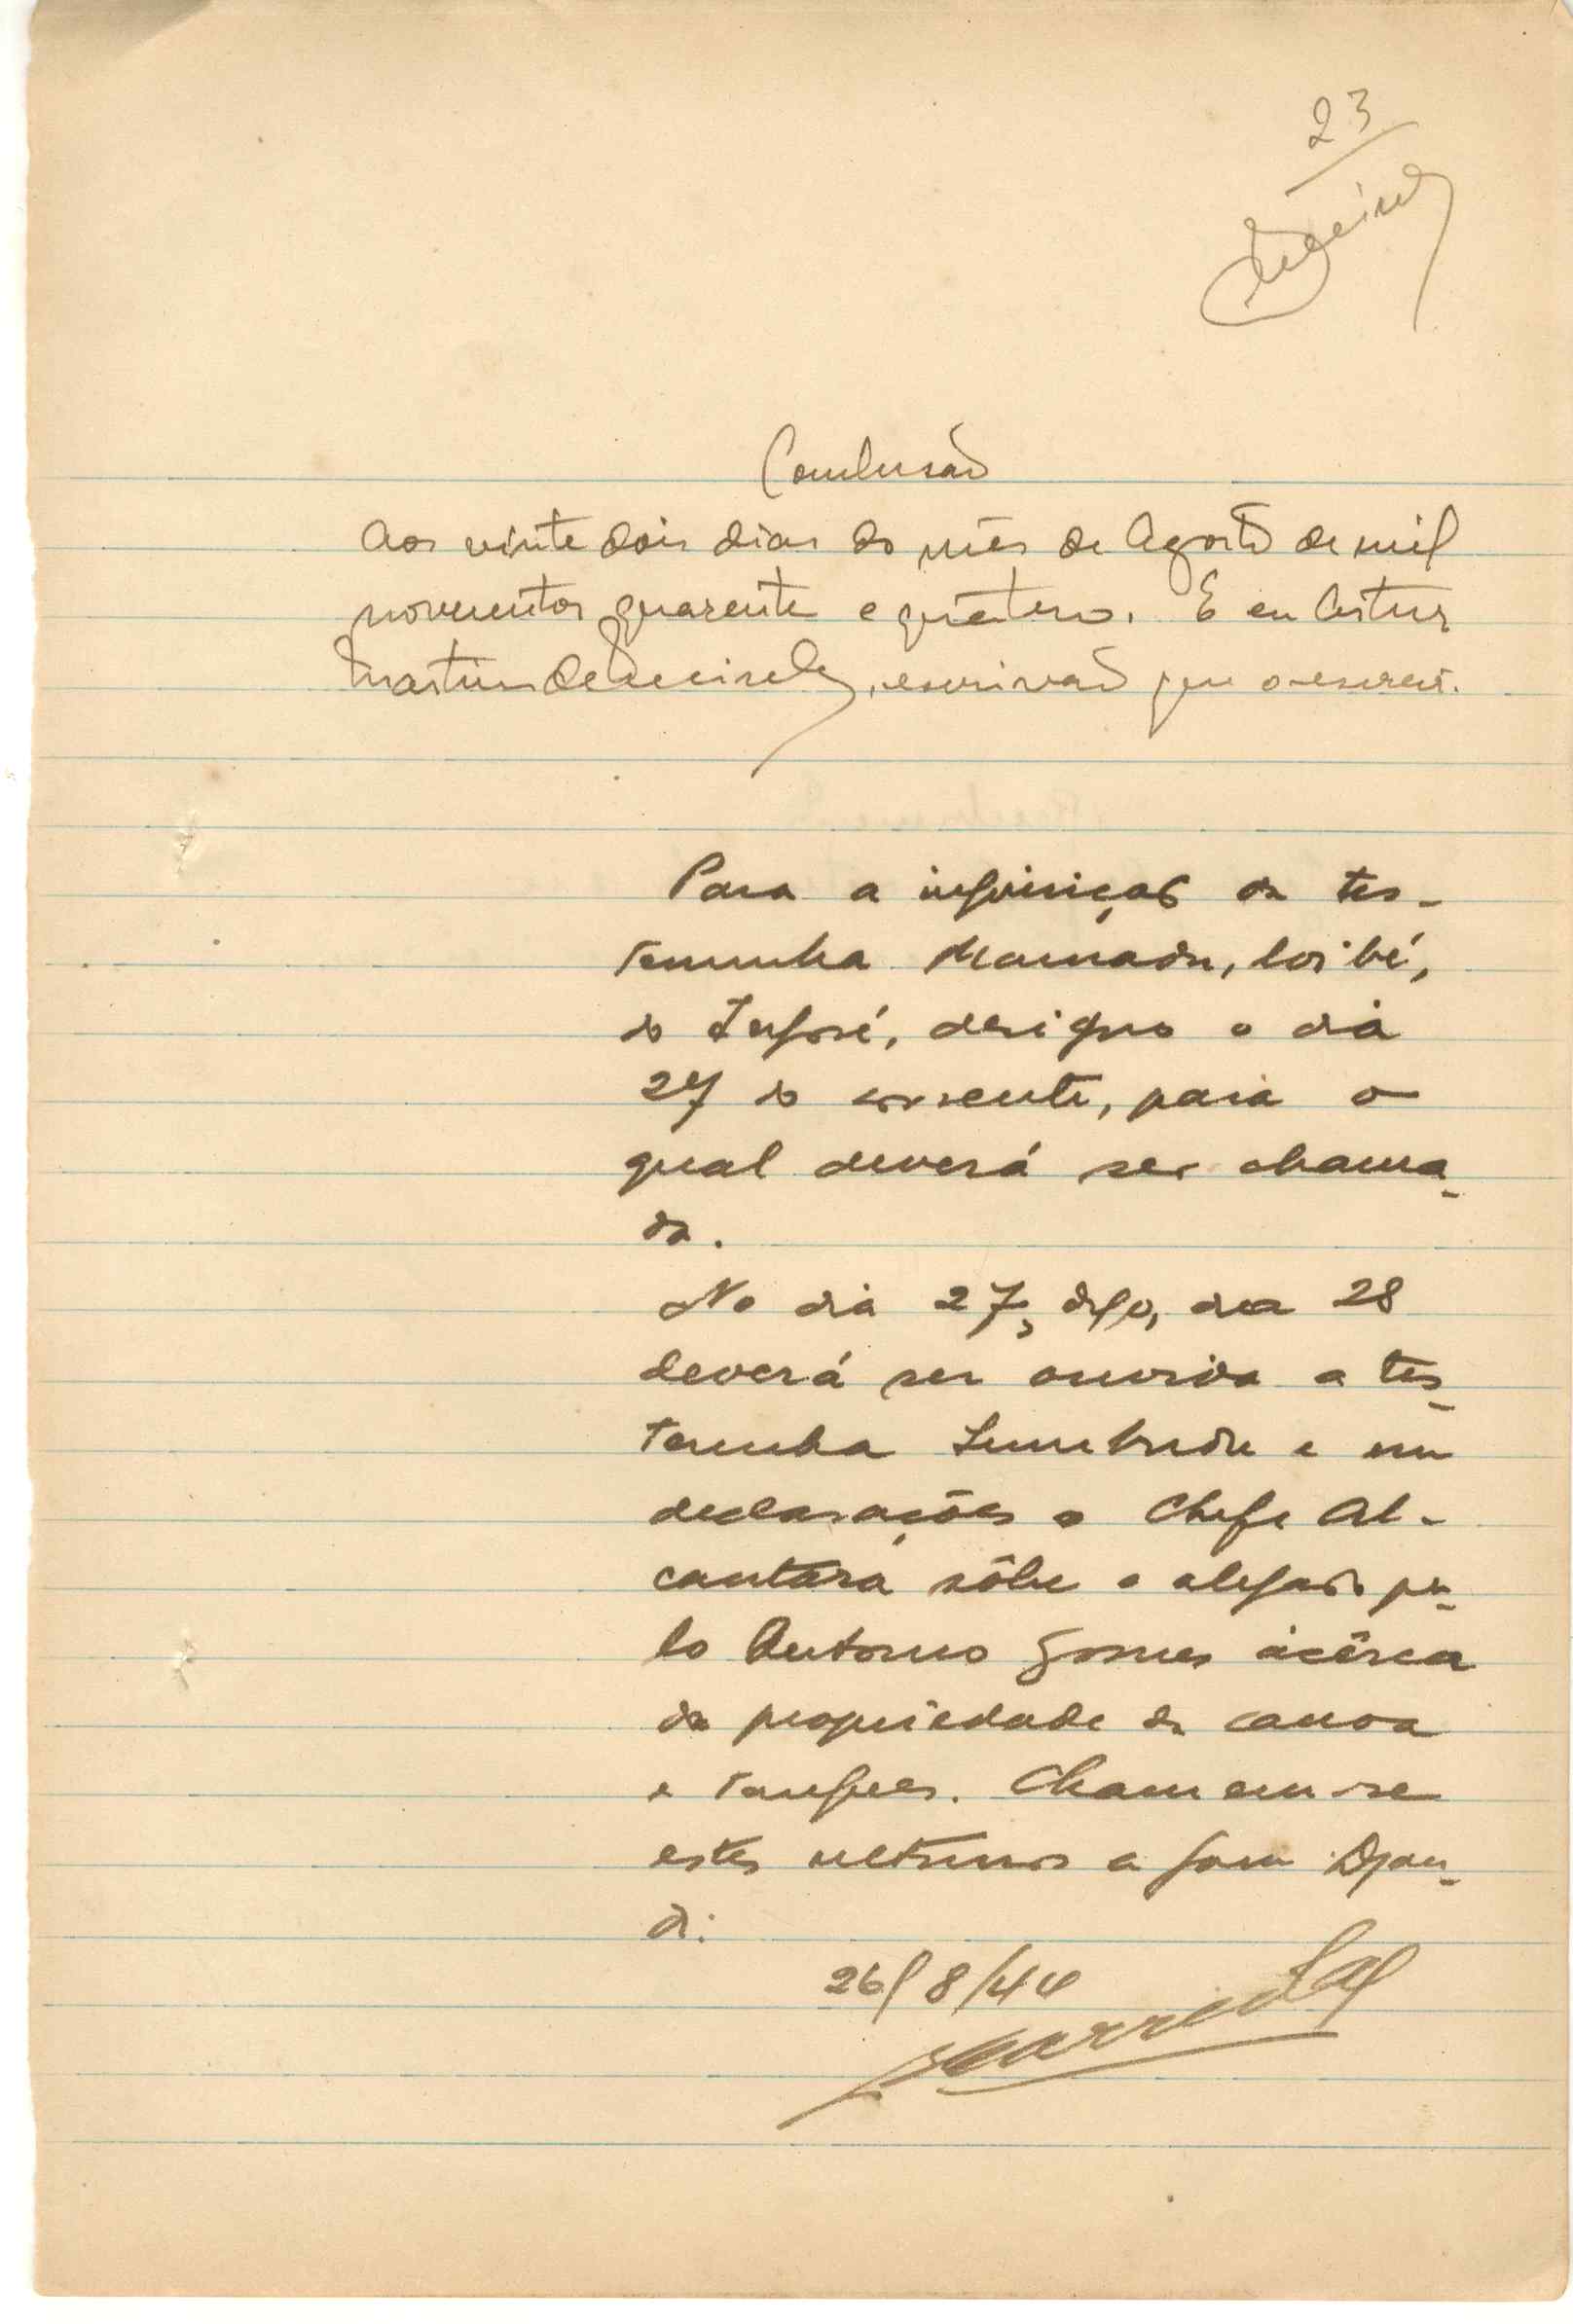 23
Conclusão
Aos vinte dois dias do mês de Agosto de mil
novecentos quarenta e quatro. E eu Artur
Martins de Meireles, escrivão que o escrevi.
Para a inquirição da tes-
temunha Mamadu,
do designo o dia
27 do corrente, para o
qual deverá ser chama-
da.
No dia 27, digo, dia 28
deverá ser ouvida a tes-
temunha e em
declarações o Chefe Al-
cantara sôbre o alegado pe-
lo Antonio Gomes ácêrca
da propriedade da canoa
e tanques. Chamem-se
estes ultimos a
26/8/44